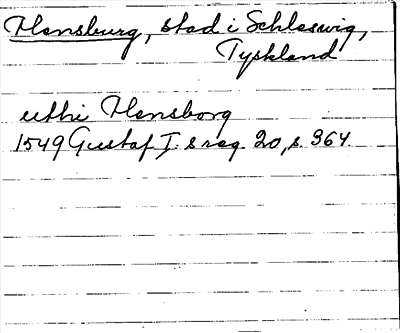 Flensburg, stad i Schleswig,
Tyskland
uthi Flensborg
1549 Gustaf I:s reg. 20, s. 364.